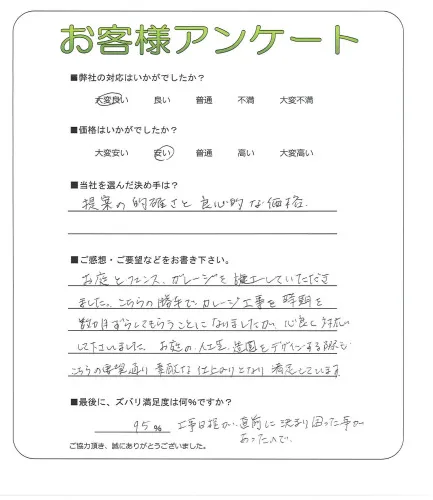 お客様アンケート
■弊社の対応はいかがでしたか？
大変良い 良い 普通 不満 大変不満
■価格はいかがでしたか？
大変安い 安い 普通 高い 大変高い
■当社を選んだ決め手は？
提案の的確さと良心的な価格。
■ご感想・ご要望などをお書き下さい。
お庭とフェンス、ガレージを施工していただき
ました。こちらの勝手でガレージ工事を時期を
数か月ずらしてもらうことになりましたが、心良く対応
して下さいました。お庭の人工芝、造園をデザインする際も
こちらの要望通り素敵な仕上がりとなり満足しています
■最後に、ズバリ満足度は何％ですか？
95％ 工事日程が直前に決まり困った事が
あったので。
ご協力頂き、誠にありがとうございました。